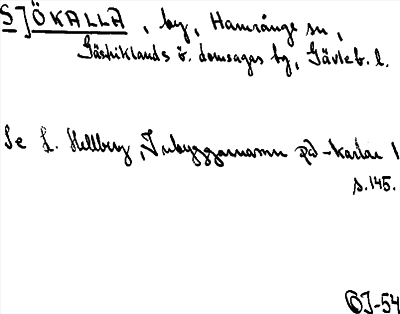 SJÖKALLA, by, Hamrånge sn,
Gästriklands ö. domsagas hg, Gävleb. l.
Se L. Hellberg, Inbyggarnamn på -karlar 1
s. 145.
OJ-54